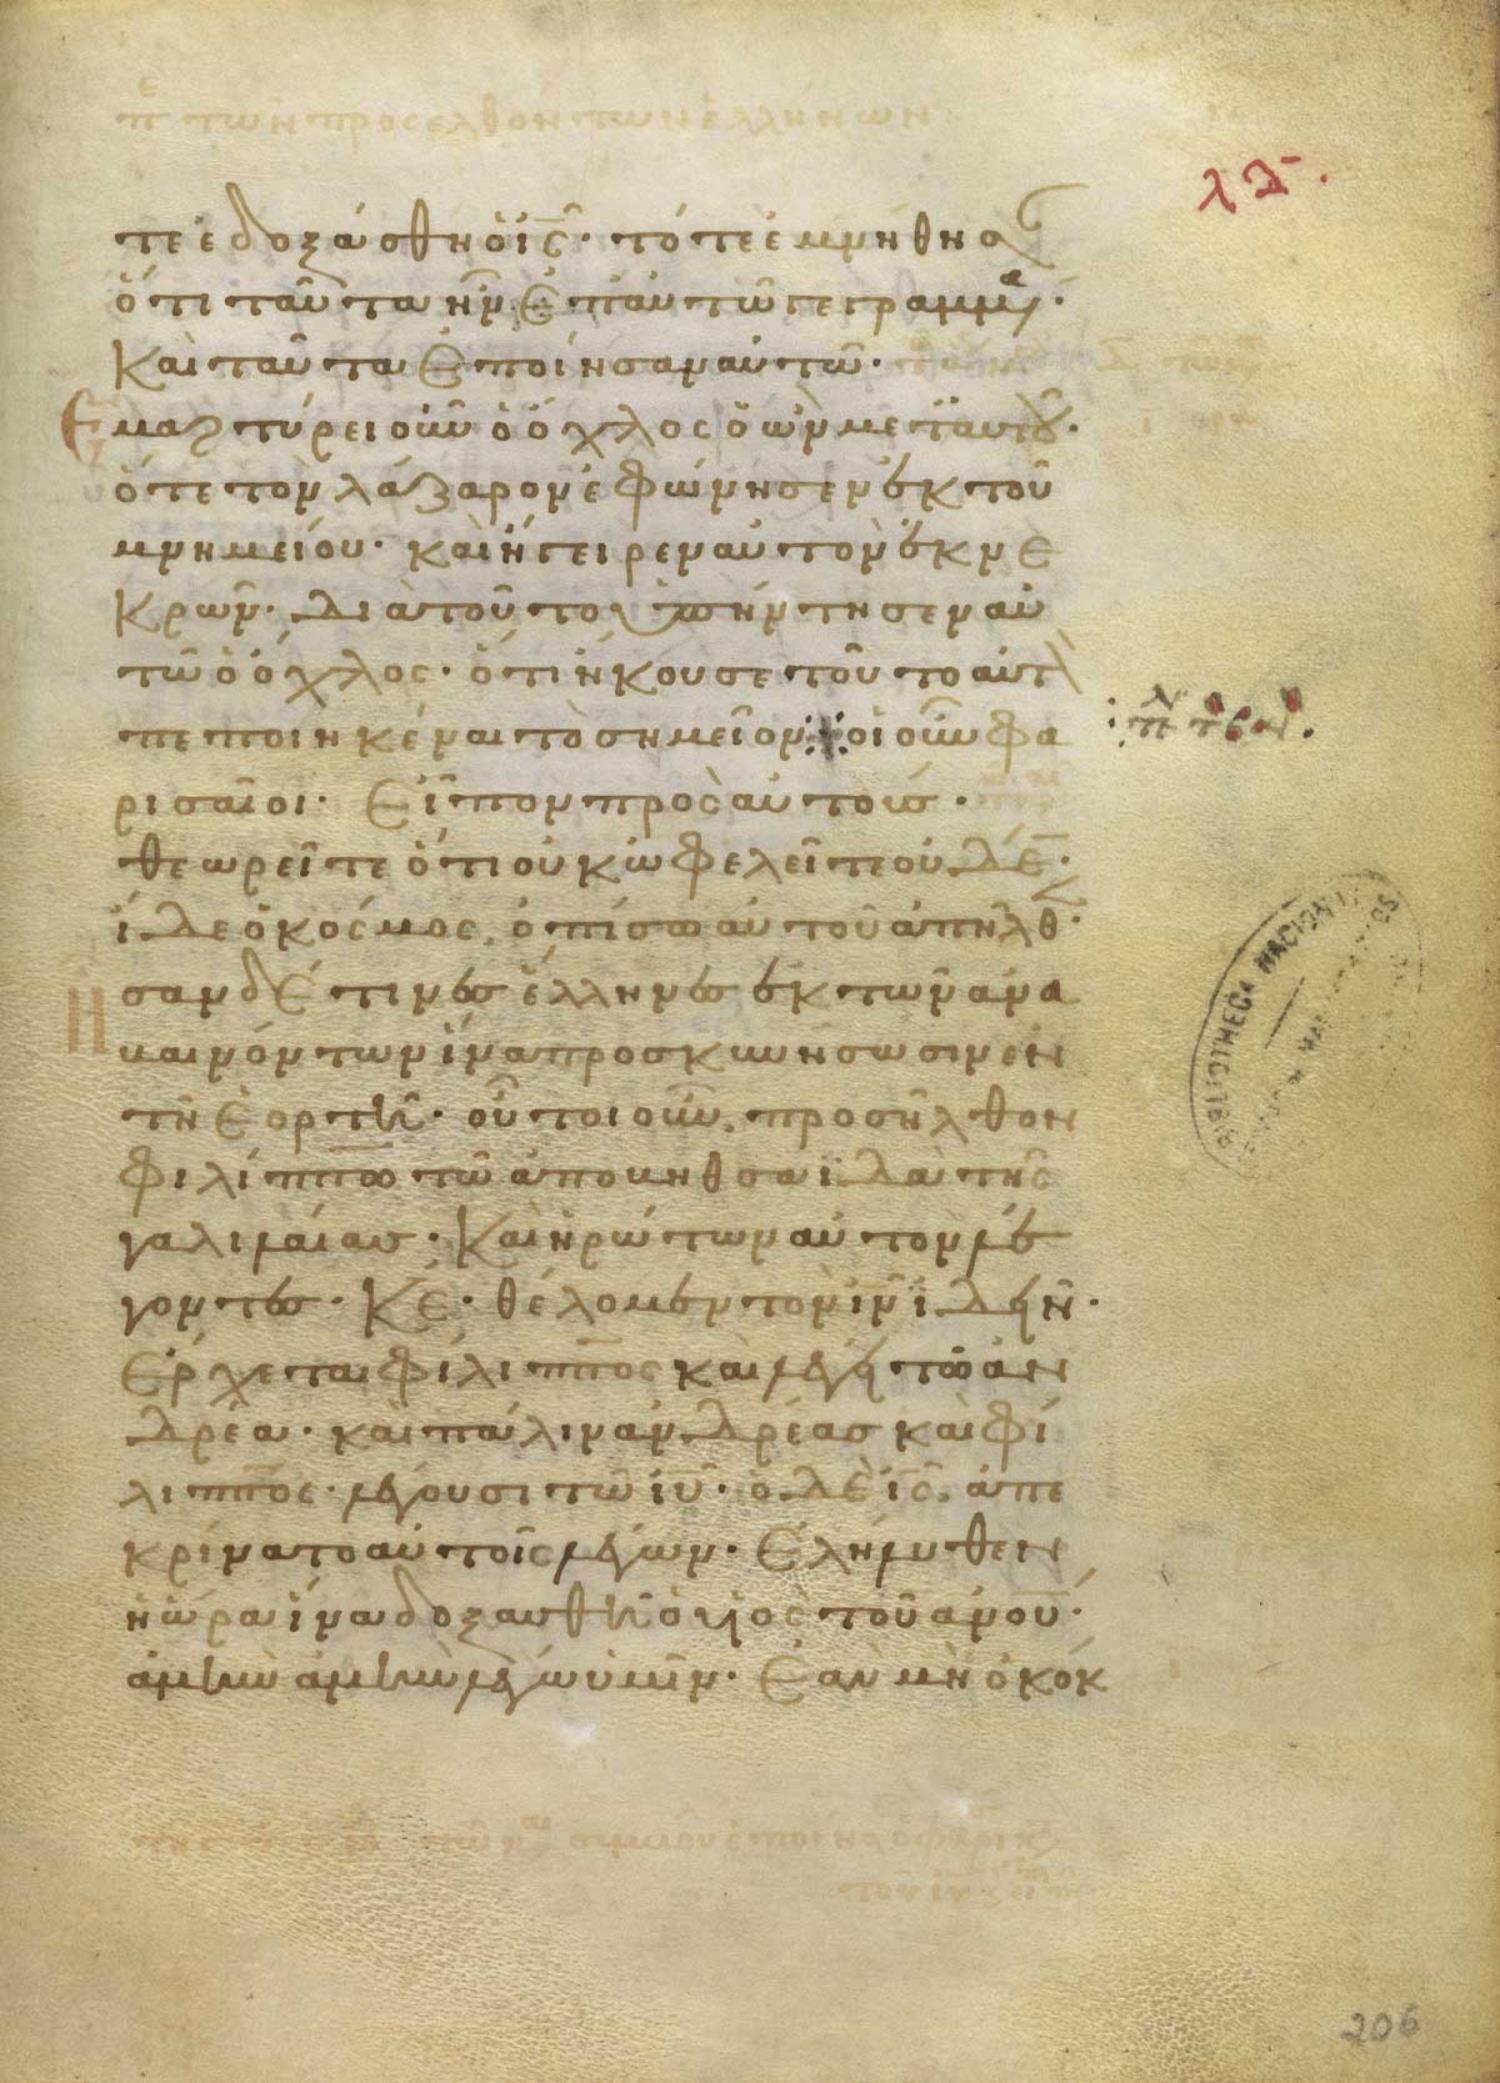 πε τῶν προσελθόντων ἑλλήνων
λδ.
τε ἐδοξάσθη ὁ ις· τότε ἐμνήθησ
ὅτι ταῦτα ἦν ἐπ αὐτῶ γεγραμμα·
Καὶ ταῦτα ἐποίησαν αὐτῶ·
Ἐμαρτύρει οὖν ὁ ὄχλος ὁ ὢν μετ αυτοῦ·
ὅτε τὸν λάζαρον ἐφώνησεν ἐκ τοῦ
μνημείου· καὶ ἤγειρεν αὐτὸν ἐκ νε
Κρῶν· Διὰ τοῦτο ὑπήντησεν αὐ
τῶ ὁ ὄχλος· ὅτι ἤκουσε τοῦτο αὐτ
πεποιηκέναι τὸ σημεῖον· οἱ οὖν φα
ρισαῖοι· Εἶπον πρὸς αὐτούς·
θεωρεῖτε ὅτι οὐκ ὠφελεῖτε οὐδέ·
ἴδε ὁ κόσμος ὀπίσω αὐτοῦ ἀπῆλθ·
Ησαν δέ τινες ἕλληνες ἐκ τῶν ἀνα
βαινόντων ἵνα προσκυνήσωσιν ἐν
τῆ ἑορτῆ· οὗτοι οὖν προσῆλθον
φιλίππω τῶ ἀπὸ βηθσαϊδὰ τῆς
γαλιλαίας· Καὶ ἠρώτων αὐτὸν λέ
γοντες· Κε· θέλομεν τὸν ιν ἰδεῖν·
Ἔρχεται φίλιππος καὶ λέγει τῶ ἀν
δρέα· καὶ πάλιν ἀνδρέας καὶ φί
λιππος· λέγουσι τῶ ιυ· ὁ δὲ ις ἀπε
κρίνατο αὐτοῖς λέγων· Ἐλήλυθεν
ἡ ὥρα ἵνα δοξασθῆ ὁ υἱὸς τοῦ ανου·
ἀμὴν ἀμὴν λέγω ὑμῖν· Ἐὰν μὴ ὁ κόκ
BIBLIOTHECA NACIONAL
206